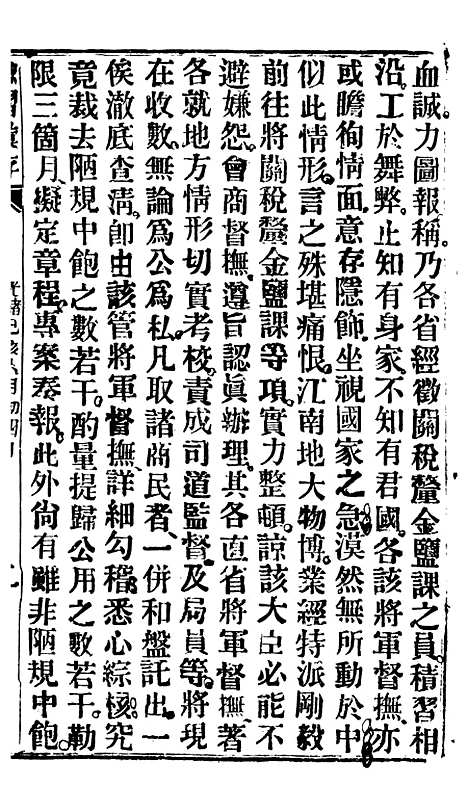 血誠。力圖報稱。乃各省經徵關稅釐金鹽課之員。積習相
沿。工於舞弊。止知有身家。不知有君國。各該將軍督撫。亦
或瞻徇情面。意存隱飾。坐視國家之急。漠然無所動於中。
似此情形。言之殊堪痛恨。江南地大物博。業經特派剛毅
前往將關稅釐金鹽課等項。實力整頓。諒該大臣必能不
避嫌怨。會商督撫。遵旨認眞辦理。其各直省將軍督撫。著
各就地方情形切實考校。責成司道監督。及局員等。將現
在收數。無論爲公爲私。凡取諸商民者。一併和盤託出。一
俟澈底查淸。卽由該管將軍督撫。詳細勾稽。悉心綜核。究
竟裁去陋規中飽之數若干。酌量提歸公用之數若干。勒
限三箇月。擬定章程。專案奏報。此外尙有雖非陋規中飽。
光緖己亥六月初四日